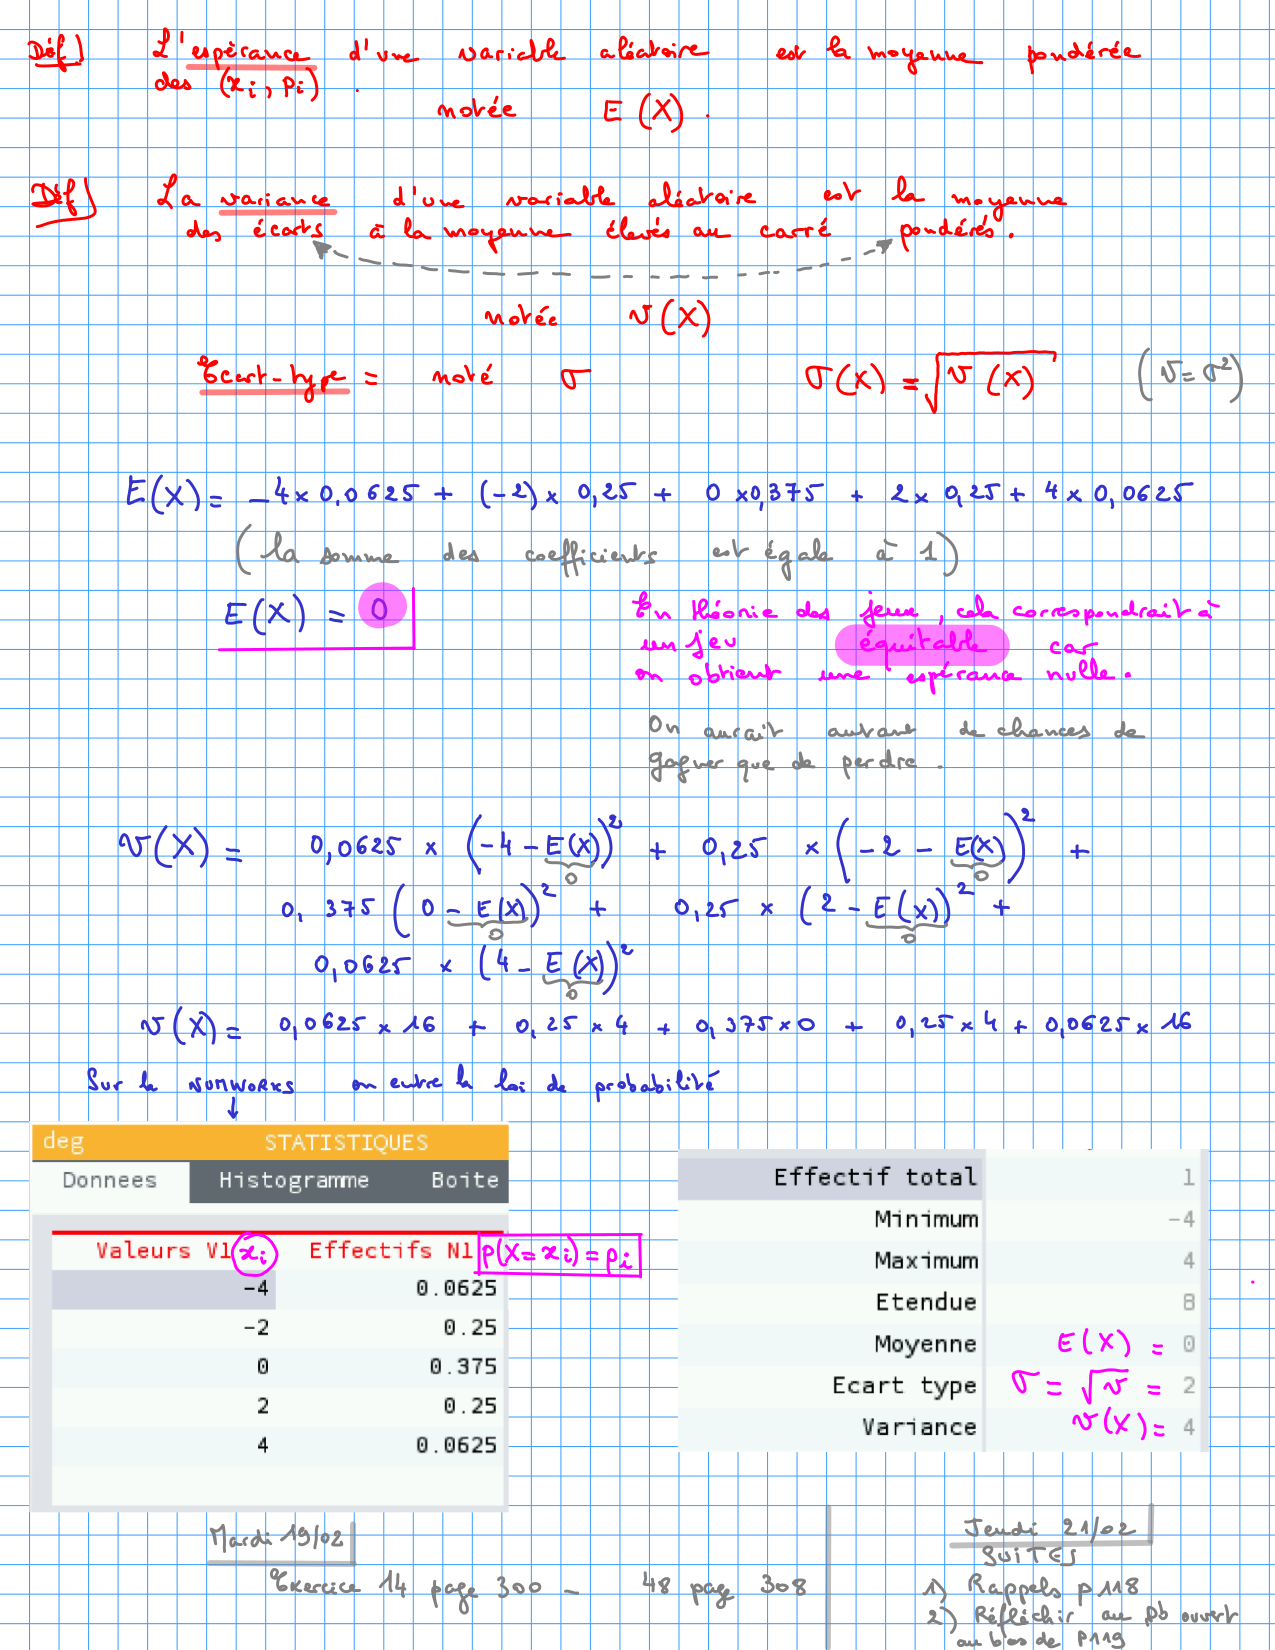 Déf) L'espèrance d'une variable aléatoire est la moyenne pondérée
des (xi, pi).
notée E(X).
Déf) La variance d'une variable aléatoire est la moyenne
des écarts à la moyenne élevés au carré pondérés.
notée v(X)
Ecart-type = noté σ σ(X) = √v(X) (v = σ²)
E(X) = -4 × 0,0625 + (-2) × 0,25 + 0 × 0,375 + 2 × 0,25 + 4 × 0,0625
(la somme des coefficients est égale à 1)
E(X) = 0
En théorie des jeux, cela correspondrait à
un jeu équitable car
on obtient une espérance nulle.
On aurait autant de chances de
gagner que de perdre.
v(X) = 0,0625 × (-4 - E(X))² + 0,25 × (-2 - E(X))² +
0 0
0,375 (0 - E(X))² + 0,25 × (2 - E(X))² +
0 0
0,0625 × (4 - E(X))²
0
v(X) = 0,0625 × 16 + 0,25 × 4 + 0,375 × 0 + 0,25 × 4 + 0,0625 × 16
Sur la NUMWORKS on entre la loi de probabilité
deg STATISTIQUES
Donnees Histogramme Boite
Valeurs V1 xi Effectifs N1 p(X = xi) = pi
-4 0.0625
-2 0.25
0 0.375
2 0.25
4 0.0625
Effectif total 1
Minimum -4
Maximum 4
Etendue 8
Moyenne E(X) = 0
Ecart type σ = √v = 2
Variance v(X) = 4
Mardi 19/02
Exercice 14 page 300 - 48 page 308
Jeudi 21/02
SUITES
1) Rappels p 118
2) Réfléchir au pb ouvert
au bas de p119